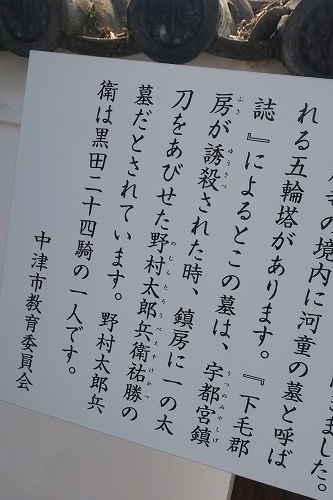 ました。
の境内に河童の墓と呼ば
れる五輪塔があります。『下毛郡
誌』によるとこの墓は、宇都宮鎮
うつのみやしげ
房が誘殺された時、鎮房に一の太
ふさ ゆうさつ
刀をあびせた野村太郎兵衛祐勝の
のむらたろうべえすけかつ
墓だとされています。野村太郎兵
衛は黒田二十四騎の一人です。
中津市教育委員会